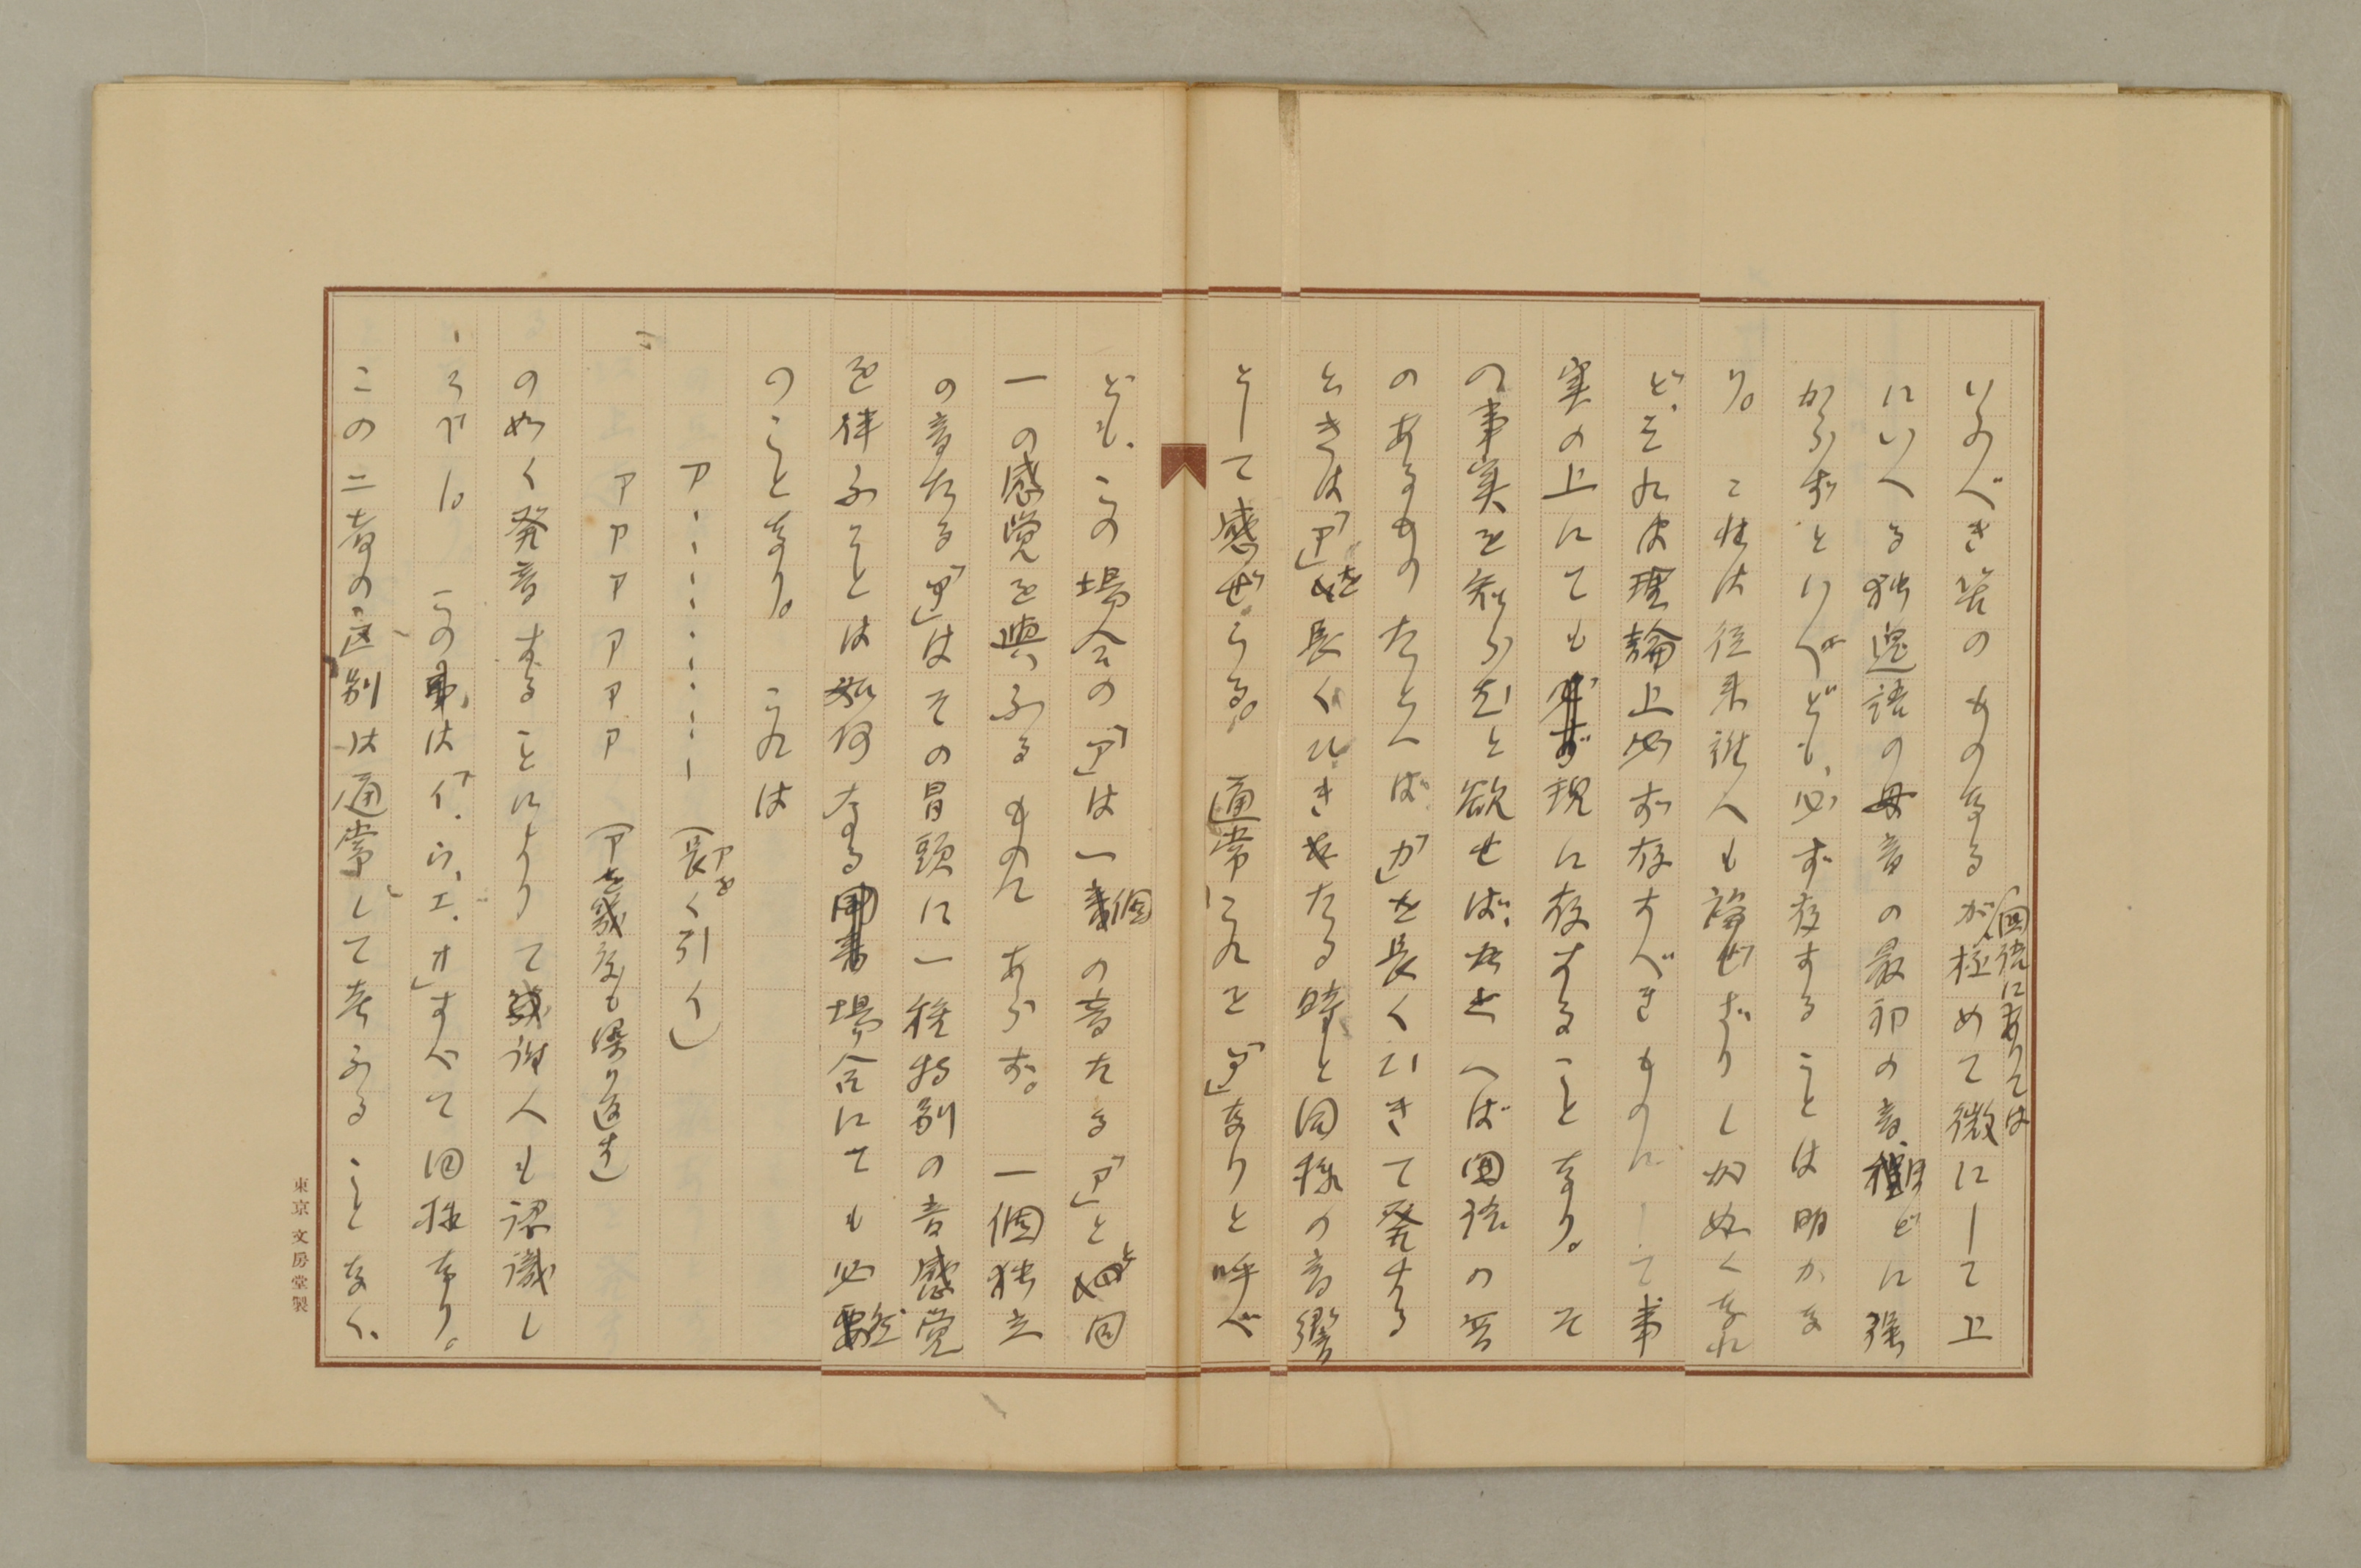 いふべき筈のものなるが、国語にありては極めて微にして上
にいへる独逸語の母音の最初の音程どに強
からずといへども、必ず存することは明かな
り。これは従来誰人も論ぜざりし如くなれ
ど、それは理論上必ず存すべきものにして事
実の上にても現に存することなり。そ
の事実を知らむと欲せば、たとへば国語の音
のあるものたとへば「カ」を長くひきて発する
ときは「ア」を長くひきたる時と同様の音響
として感ぜらる。通常これを「ア」なりと呼べ
ども、この場合の「ア」は一個の音たる「ア」と同
一の感覚を与ふるものにあらず。一個独立
の音たる「ア」はその冒頭に一種特別の音感覚
を伴ふことは如何なる場合にても必然
のことなり。これは
ア、、、、、、(アを長く引く)
アアアアアア(アを幾度も繰り返す)
の如く発音することによりて誰人も認識し
うべし。この事は「イ、ウ、エ、オ」すべて同様なり。
この二者の区別は通常して考ふることなく、
東京 文房堂製